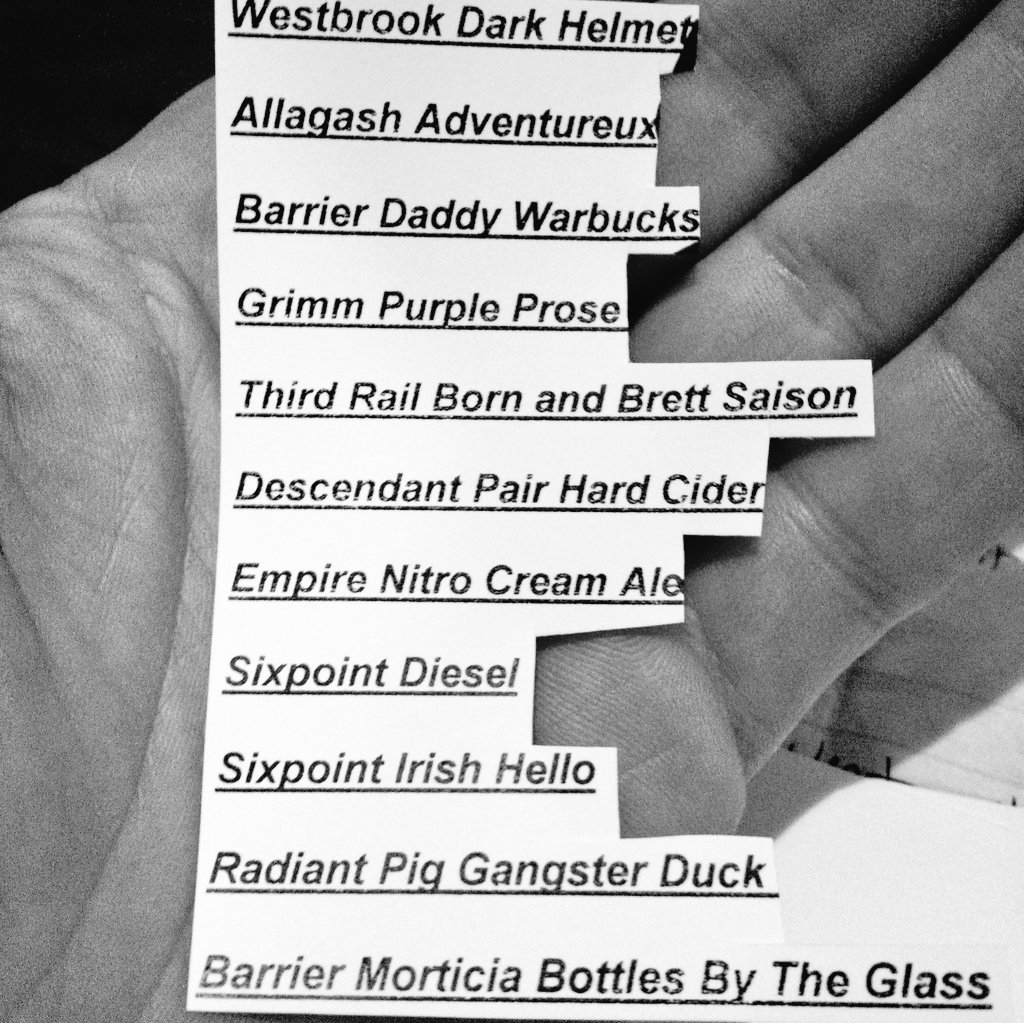 Westbrook Dark Helmet
Allagash Adventureux
Barrier Daddy Warbucks
Grimm Purple Prose
Third Rail Born and Brett Saison
Descendant Pair Hard Cider
Empire Nitro Cream Ale
Sixpoint Diesel
Sixpoint Irish Hello
Radiant Pig Gangster Duck
Barrier Morticia Bottles By The Glass